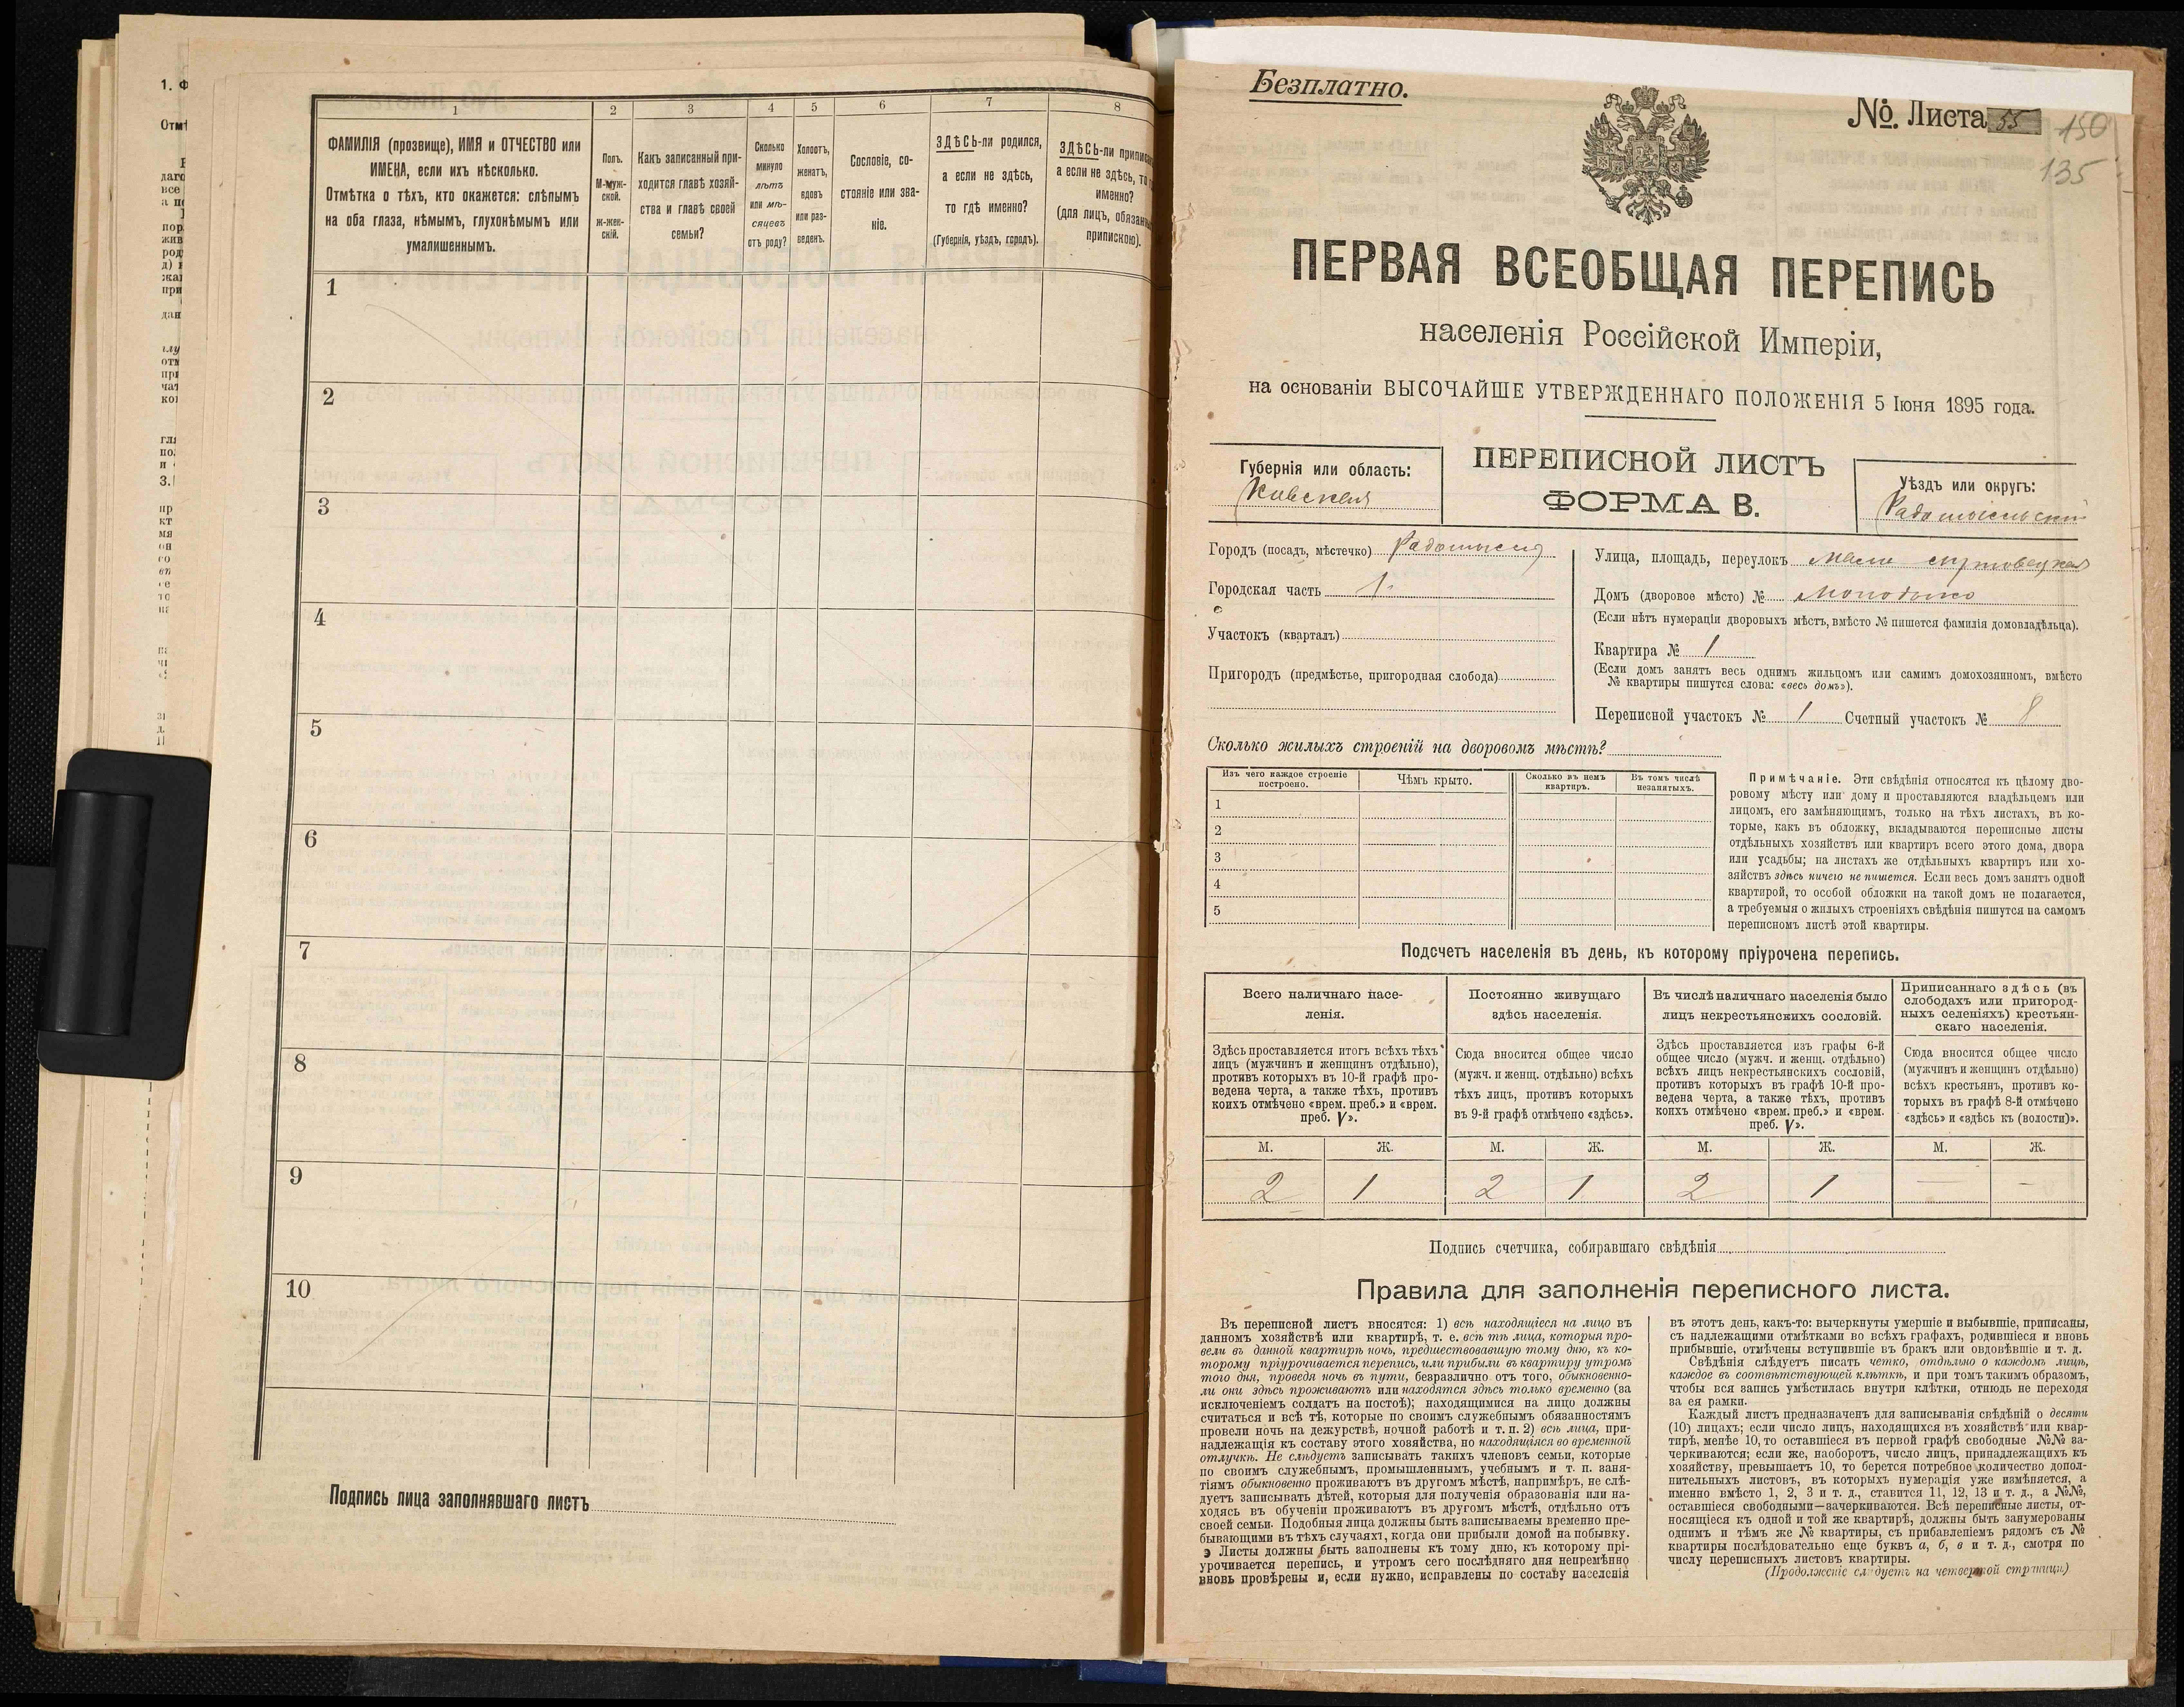 1
2
3
4
5
6
7
8
ФАМИЛІЯ (прозвище), ИМЯ и ОТЧЕСТВО или
ИМЕНА, если ихъ нѣсколько.
Отмѣтка о тѣхъ, кто окажется: слѣпымъ
на оба глаза, нѣмымъ, глухонѣмымъ или
умалишеннымъ.
Полъ.
М-муж-
ской.
ж-жен-
скій.
Какъ записанный при-
ходится главѣ хозяй-
ства и главѣ своей
семьи?
Сколько
минуло
лѣтъ
или мѣ-
сяцевъ
отъ роду?
Холостъ,
женатъ,
вдовъ
или раз-
веденъ.
Сословіе, со-
стояніе или зва-
ніе.
ЗДѢСЬ-ли родился,
а если не здѣсь,
то гдѣ именно?
(Губернія, уѣздъ, городъ).
ЗДѢСЬ-ли
а если не здѣсь, то
именно?
(для лицъ,
припискою).
1
2
3
4
5
6
7
8
9
10
Подпись лица заполнявшаго листъ
Безплатно.
№ Листа 55
150
135
ПЕРВАЯ ВСЕОБЩАЯ ПЕРЕПИСЬ
населенія Россійской Имперіи,
на основаніи ВЫСОЧАЙШЕ УТВЕРЖДЕННАГО ПОЛОЖЕНІЯ 5 Іюня 1895 года.
Губернія или область:
Кіевская
ПЕРЕПИСНОЙ ЛИСТЪ
ФОРМА В.
Уѣздъ или округъ:
Радомысльскій
Городъ (посадъ, мѣстечко) Радомысль
Городская часть 1
Участокъ (кварталъ)
Пригородъ (предмѣстье, пригородная слобода)
Улица, площадь, переулокъ
Домъ (дворовое мѣсто) №
(Если нѣтъ нумераціи дворовыхъ мѣстъ, вмѣсто № пишется фамилія домовладѣльца).
Квартира № 1
(Если домъ занятъ весь однимъ жильцомъ или самимъ домохозяиномъ, вмѣсто
№ квартиры пишутся слова: «весь домъ»).
Переписной участокъ № 1 Счетный участокъ № 8
Сколько жилыхъ строеній на дворовомъ мѣстѣ?
Изъ чего каждое строеніе
построено.
Чѣмъ крыто.
Сколько въ немъ
квартиръ.
Въ томъ числѣ
незанятыхъ.
1
2
3
4
5
Примѣчаніе. Эти свѣдѣнія относятся къ цѣлому дво-
ровому мѣсту или дому и проставляются владѣльцемъ или
лицомъ, его замѣняющимъ, только на тѣхъ листахъ, въ ко-
торые, какъ въ обложку, вкладываются переписные листы
отдѣльныхъ хозяйствъ или квартиръ всего этого дома, двора
или усадьбы; на листахъ же отдѣльныхъ квартиръ или хо-
зяйствъ здѣсь ничего не пишется. Если весь домъ занятъ одной
квартирой, то особой обложки на такой домъ не полагается,
а требуемыя о жилыхъ строеніяхъ свѣдѣнія пишутся на самомъ
переписномъ листѣ этой квартиры.
Подсчетъ населенія въ день, къ которому пріурочена перепись.
Всего наличнаго насе-
ленія.
Постоянно живущаго
здѣсь населенія.
Въ числѣ наличнаго населенія было
лицъ некрестьянскихъ сословій.
Приписаннаго здѣсь (въ
слободахъ или пригород-
ныхъ селеніяхъ) крестьян-
скаго населенія.
Здѣсь проставляется итогъ всѣхъ тѣхъ
лицъ (мужчинъ и женщинъ отдѣльно),
противъ которыхъ въ 10-й графѣ про-
ведена черта, а также тѣхъ, противъ
коихъ отмѣчено «врем. преб.» и «врем.
преб. V».
Сюда вносится общее число
(мужч. и женщ. отдѣльно) всѣхъ
тѣхъ лицъ, противъ которыхъ
въ 9-й графѣ отмѣчено «здѣсь».
Здѣсь проставляется изъ графы 6-й
общее число (мужч. и женщ. отдѣльно)
всѣхъ лицъ некрестьянскихъ сословій,
противъ которыхъ въ графѣ 10-й про-
ведена черта, а также тѣхъ, противъ
коихъ отмѣчено «врем. преб.» и «врем.
преб. V».
Сюда вносится общее число
(мужчинъ и женщинъ отдѣльно)
всѣхъ крестьянъ, противъ ко-
торыхъ въ графѣ 8-й отмѣчено
«здѣсь» и «здѣсь къ (волости)».
М. Ж. М. Ж. М. Ж. М. Ж.
2 1 2 1 2 1 — —
Подпись счетчика, собиравшаго свѣдѣнія
Правила для заполненія переписного листа.
Въ переписной листъ вносятся: 1) всѣ находящіеся на лицо въ
данномъ хозяйствѣ или квартирѣ, т. е. всѣ тѣ лица, которыя про-
вели въ данной квартирѣ ночь, предшествовавшую тому дню, къ ко-
торому пріурочивается перепись, или прибыли въ квартиру утромъ
того дня, проведя ночь въ пути, безразлично отъ того, обыкновенно-
ли они здѣсь проживаютъ или находятся здѣсь только временно (за
исключеніемъ солдатъ на постоѣ); находящимися на лицо должны
считаться и всѣ тѣ, которые по своимъ служебнымъ обязанностямъ
провели ночь на дежурствѣ, ночной работѣ и т. п. 2) всѣ лица, при-
надлежащія къ составу этого хозяйства, но находящіяся во временной
отлучкѣ. Не слѣдуетъ записывать такихъ членовъ семьи, которые
по своимъ служебнымъ, промышленнымъ, учебнымъ и т. п. заня-
тіямъ обыкновенно проживаютъ въ другомъ мѣстѣ, напримѣръ, не слѣ-
дуетъ записывать дѣтей, которыя для полученія образованія или на-
ходясь въ обученіи проживаютъ въ другомъ мѣстѣ, отдѣльно отъ
своей семьи. Подобныя лица должны быть записываемы временно пре-
бывающими въ тѣхъ случаяхъ, когда они прибыли домой на побывку.
Листы должны быть заполнены къ тому дню, къ которому прі-
урочивается перепись, и утромъ сего послѣдняго дня непремѣнно
вновь провѣрены и, если нужно, исправлены по составу населенія
въ этотъ день, какъ-то: вычеркнуты умершіе и выбывшіе, приписаны,
съ надлежащими отмѣтками во всѣхъ графахъ, родившіеся и вновь
прибывшіе, отмѣчены вступившіе въ бракъ или овдовѣвшіе и т. д.
Свѣдѣнія слѣдуетъ писать четко, отдѣльно о каждомъ лицѣ,
каждое въ соотвѣтствующей клѣткѣ, и при томъ такимъ образомъ,
чтобы вся запись умѣстилась внутри клѣтки, отнюдь не переходя
за ея рамки.
Каждый листъ предназначенъ для записыванія свѣдѣній о десяти
(10) лицахъ; если число лицъ, находящихся въ хозяйствѣ или квар-
тирѣ, менѣе 10, то оставшіеся въ первой графѣ свободные №№ за-
черкиваются; если же, наоборотъ, число лицъ, принадлежащихъ къ
хозяйству, превышаетъ 10, то берется потребное количество допол-
нительныхъ листовъ, въ которыхъ нумерація уже измѣняется, а
именно вмѣсто 1, 2, 3 и т. д., ставится 11, 12, 13 и т. д., а №№,
оставшіеся свободными—зачеркиваются. Всѣ переписные листы, от-
носящіеся къ одной и той же квартирѣ, должны быть занумерованы
однимъ и тѣмъ же № квартиры, съ прибавленіемъ рядомъ съ №
квартиры послѣдовательно еще буквъ а, б, в и т. д., смотря по
числу переписныхъ листовъ квартиры.
(Продолженіе слѣдуетъ на четвертой страницѣ)